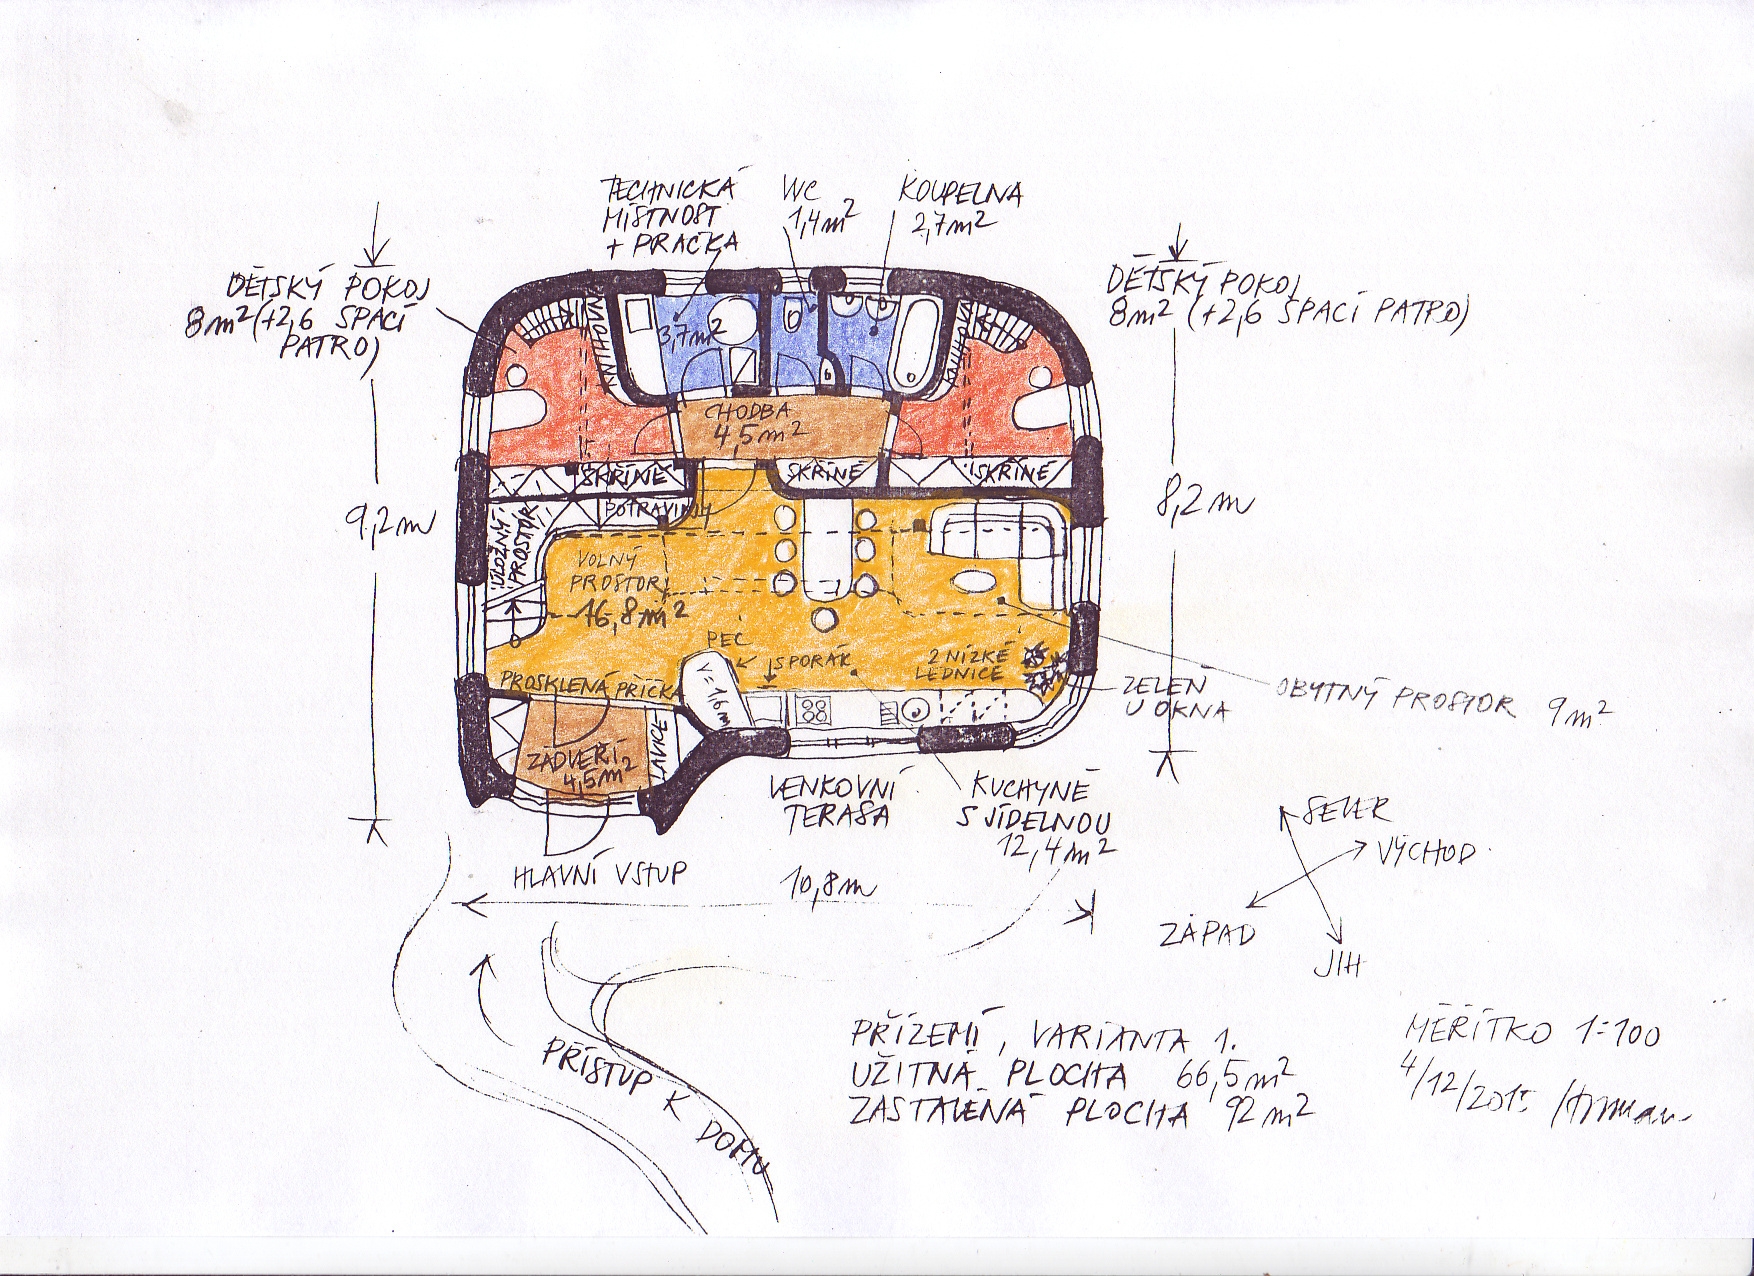 TECHNICKÁ
MÍSTNOST
+ PRAČKA
WC
1,4m²
KOUPELNA
2,7m²
DĚTSKÝ POKOJ
8m² (+2,6 SPACÍ
PATRO)
DĚTSKÝ POKOJ
8m² (+2,6 SPACÍ PATRO)
3,7m²
CHODBA
4,5m²
SKŘÍNĚ
SKŘÍNĚ
SKŘÍNĚ
POTRAVINY
ÚLOŽNÝ
PROSTOR
9,2m
8,2m
VOLNÝ
PROSTOR
16,8m²
PEC
SPORÁK
2 NÍZKÉ
LEDNICE
V=1,6m
PROSKLENÁ PŘÍČKA
ZELEŇ
U OKNA
OBYTNÝ PROSTOR 9m²
ZÁDVEŘÍ
4,5m²
LAVICE
VENKOVNÍ
TERASA
KUCHYNĚ
S JÍDELNOU
12,4m²
HLAVNÍ VSTUP
10,8m
SEVER
VÝCHOD
ZÁPAD
JIH
PŘÍSTUP K DOMU
PŘÍZEMÍ, VARIANTA 1.
UŽITNÁ PLOCHA 66,5m²
ZASTAVĚNÁ PLOCHA 92m²
MĚŘÍTKO 1:100
4/12/2015